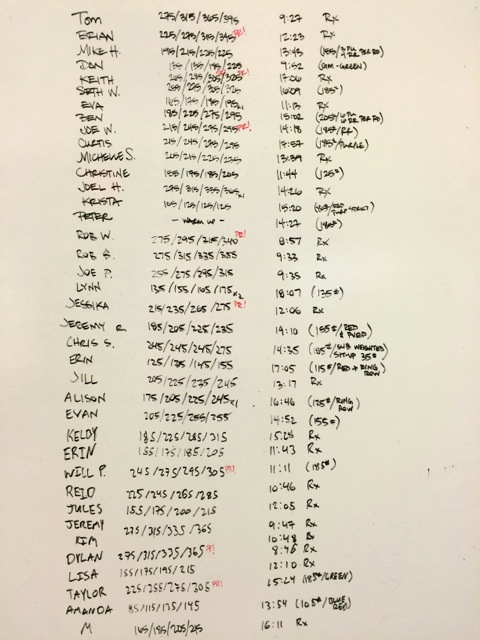 TOM 275/315/365/395 9:27 Rx
BRIAN 225/275/315/345 PR! 12:23 Rx
MIKE H. 195/215/225/225 13:43 (185/
DON 135/155/195/225 9:52 (GTM-GREEN)
KEITH 265/295/305/305 PR! 17:06 Rx
SETH W. 255/275/305/325 16:09 (185#)
EVA 165/175/185/195x1 11:13 Rx
BEN 185/225/275/295 15:02 (205#/
JOE W. 215/245/275/295 PR! 14:18 (185/RX)
CURTIS 215/245/275/295 17:57 (185#/PURPLE)
MICHELLE S. 205/215/225/235 13:39 Rx
CHRISTINE 155/175/185/205 11:44 (125#)
JOEL H. 275/315/335/365x1 14:26 Rx
KRISTA 105/125/125/125 15:20
PETER - WARM UP - 14:27 (185#)
ROB W. 275/295/315/340 PR! 8:57 Rx
ROB S. 275/315/335/355 9:33 Rx
JOE P. 255/275/295/315 9:35 Rx
LYNN 135/155/165/175x2 18:07 (135#)
JESSIKA 215/235/265/275 PR! 12:06 Rx
JEREMY R. 185/205/225/235 19:10 (155#/RED
CHRIS S. 245/245/245/275 14:35 (185#/SUB WEIGHTED/SIT-UP 35#
ERIN 125/135/145/155 17:05 (115#/RED + RING ROW)
JILL 205/225/235/245 13:17 Rx
ALISON 175/205/225/245x1 16:46 (125#/RING ROW)
EVAN 205/225/255/255 14:52 (155#)
KELDY 185/225/285/315 15:28 Rx
ERIN 155/175/185/205 11:43 Rx
WILL P. 245/275/295/305 PR! 11:11 (185#)
REID 225/245/265/285 10:46 Rx
JULES 155/175/200/215 12:05 Rx
JEREMY 275/315/335/365 9:47 Rx
KIM 10:48 Rx
DYLAN 275/315/335/365 PR! 8:46 Rx
LISA 155/175/195/215 12:10 Rx
TAYLOR 225/255/275/305 PR! 15:24 (185#/GREEN)
AMANDA 85/115/135/145 13:54 (105#/BLUE RED)
M 165/185/205/215 16:11 Rx